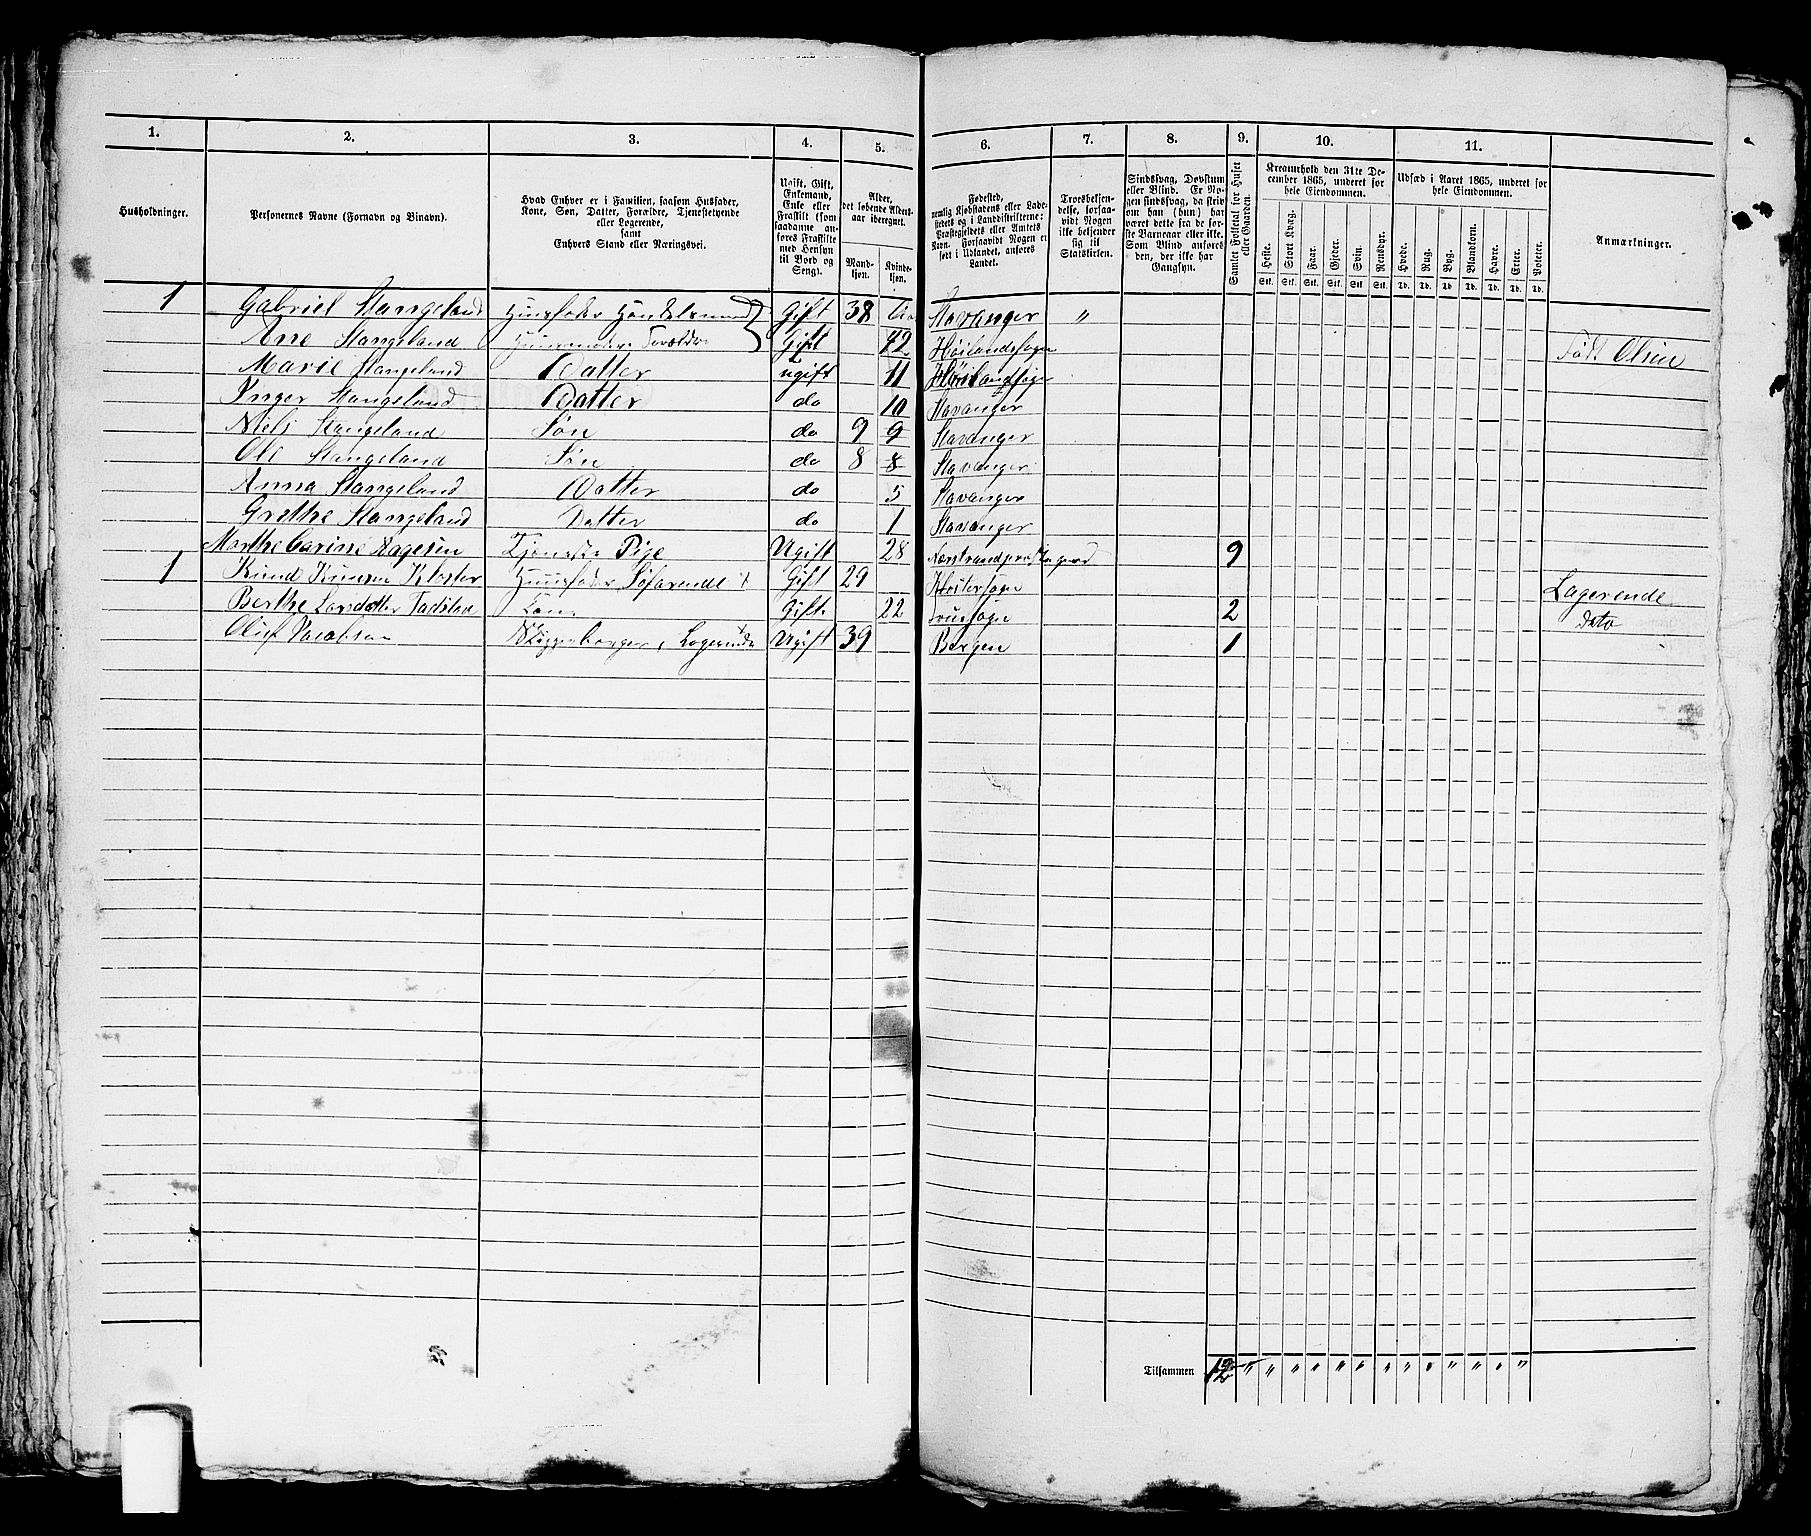 1. 2. 3. 4. 5. 6. 7. 8. 9. 10. 11.
Husholdninger.
Personernes Navne (Fornavn og Binavn).
Hvad Enhver er i Familien, saasom Husfader,
Kone, Søn, Datter, Forældre, Tjenestetyende
eller Logerende,
samt
Enhvers Stand eller Næringsvei.
Ugift, Gift,
Enkemand,
Enke eller
Fraskilt (som
saadanne an-
føres Fraskilte
med Hensyn
til Bord og
Seng).
Alder,
det løbende Aldersaar iberegnet.
Mandkjøn.
Kvindekjøn.
Fødested,
nemlig Kjøbstadens eller Lade-
stedets og i Landdistrikterne:
Præstegjeldets eller Amtets
Navn. Forsaavidt Nogen er
født i Udlandet, anføres
Landet.
Troesbekjen-
delse, forsaa-
vidt Nogen
ikke bekjender
sig til
Statskirken.
Sindssvag, Døvstum
eller Blind. Er No-
gen sindssvag, da skriv
om han (hun) har
været dette fra de før-
ste Barneaar eller ikke.
Som Blind anføres
den, der ikke har
Gangsyn.
Samlet Folketal for Huset eller Gaarden.
Kreaturhold den 31te De-
cember 1865, underet for
hele Eiendommen.
Heste. Stort Kvæg. Faar. Gjeder. Svin. Rensdyr.
Stk. Stk. Stk. Stk. Stk. Stk.
Udsæd i Aaret 1865, underet for
hele Eiendommen.
Hvede. Rug. Byg. Blandkorn. Havre. Erter. Poteter.
Td. Td. Td. Td. Td. Td. Td.
Anmærkninger.
1 Gabriel Stangeland Huusfader Handelsmand Gift 38 Stavanger "
Ane Stangeland Huusmoder Forældre Gift 42 Høilandsogn Født Olsen
Marie Stangeland Datter ugift 11 Høilandsogn
Inger Stangeland Datter do 10 Stavanger
Niels Stangeland Søn do 9 9 Stavanger
Ole Stangeland Søn do 8 8 Stavanger
Anna Stangeland Datter do 5 Stavanger
Grethe Stangeland Datter do 1 Stavanger
Marthe Carine Aagesen Tjeneste Pige Ugift 28 Nerstrandpræstegjeld 9
1 Knud Knusen Kloster Huusfader Søfarende Gift 29 Klostersogn Logerende
Berthe Larsdatter Tadstad Kone Gift 22 2 dito
Oluf Jacobsen Logerende Ugift 39 Bergen 1
Tilsammen 12 " " " " " " " " " " " " "